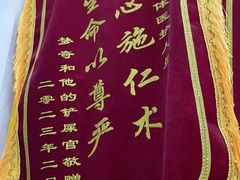 体医护人员
心施仁术
生命以尊严
蛰奇和他的铲屎官敬赠
二零二三年二月